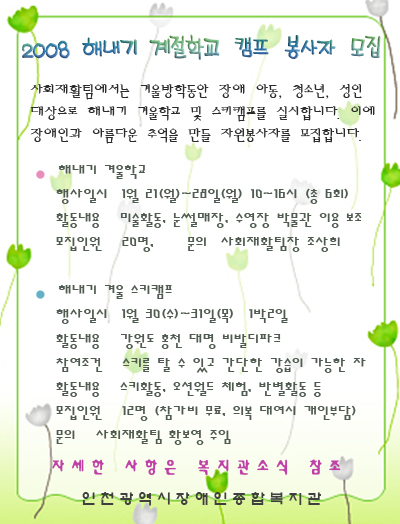 2008 해내기 계절학교 캠프 봉사자 모집
사회재활팀에서는 겨울방학동안 장애 아동, 청소년, 성인
대상으로 해내기 겨울학교 및 스키캠프를 실시합니다. 이에
장애인과 아름다운 추억을 만들 자원봉사자를 모집합니다.
해내기 겨울학교
행사일시 1월 21(월)~28일(월) 10~16시 (총 6회)
활동내용 미술활동, 눈썰매장, 수영장 박물관 이용 보조
모집인원 20명, 문의 사회재활팀장 조상희
해내기 겨울 스키캠프
행사일시 1월 30(수)~31일(목) 1박2일
활동내용 강원도 홍천 대명 비발디파크
참여조건 스키를 탈 수 있고 간단한 강습이 가능한 자
활동내용 스키활동, 오션월드 체험, 반별활동 등
모집인원 12명 (참가비 무료, 의복 대여시 개인부담)
문의 사회재활팀 황보영 주임
자세한 사항은 복지관소식 참조
인천광역시장애인종합복지관